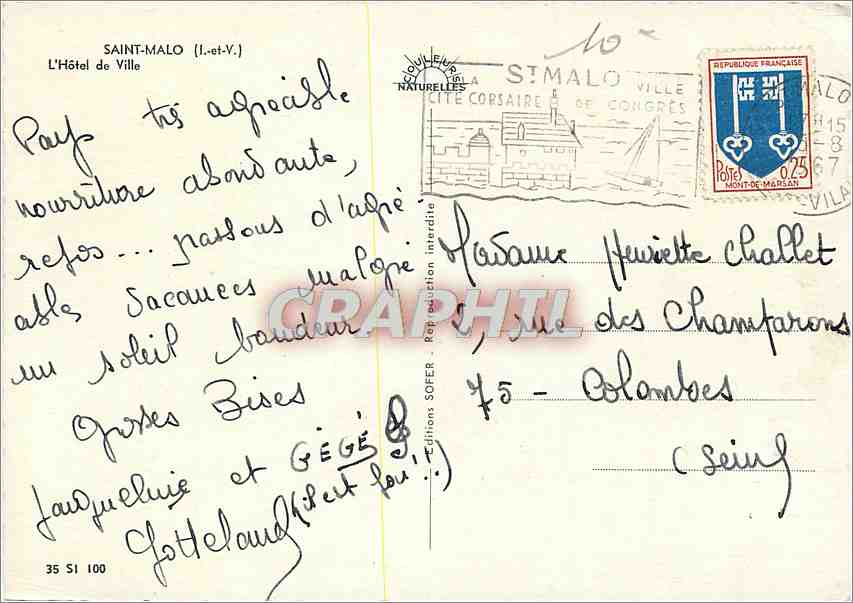 SAINT-MALO (I.-et-V.)
L'Hôtel de Ville
Pays très agréable
nourriture abondante,
repos... passons d'agré
ables vacances malgré
un soleil boudeur
Grosses Bises
Jacqueline et GÉGÉ
(il est fou!!)
Gotteland
35 SI 100
COULEURS
NATURELLES
Editions SOFER - Reproduction interdite
10
LA ST MALO VILLE
CITÉ CORSAIRE DE CONGRÈS
REPUBLIQUE FRANÇAISE
POSTES 0,25
MONT-DE-MARSAN
MALO
H15
-8
67
VILA
Madame Henriette Challet
2, rue des Champarons
75 - Colombes
(Seine)
CPARAMA